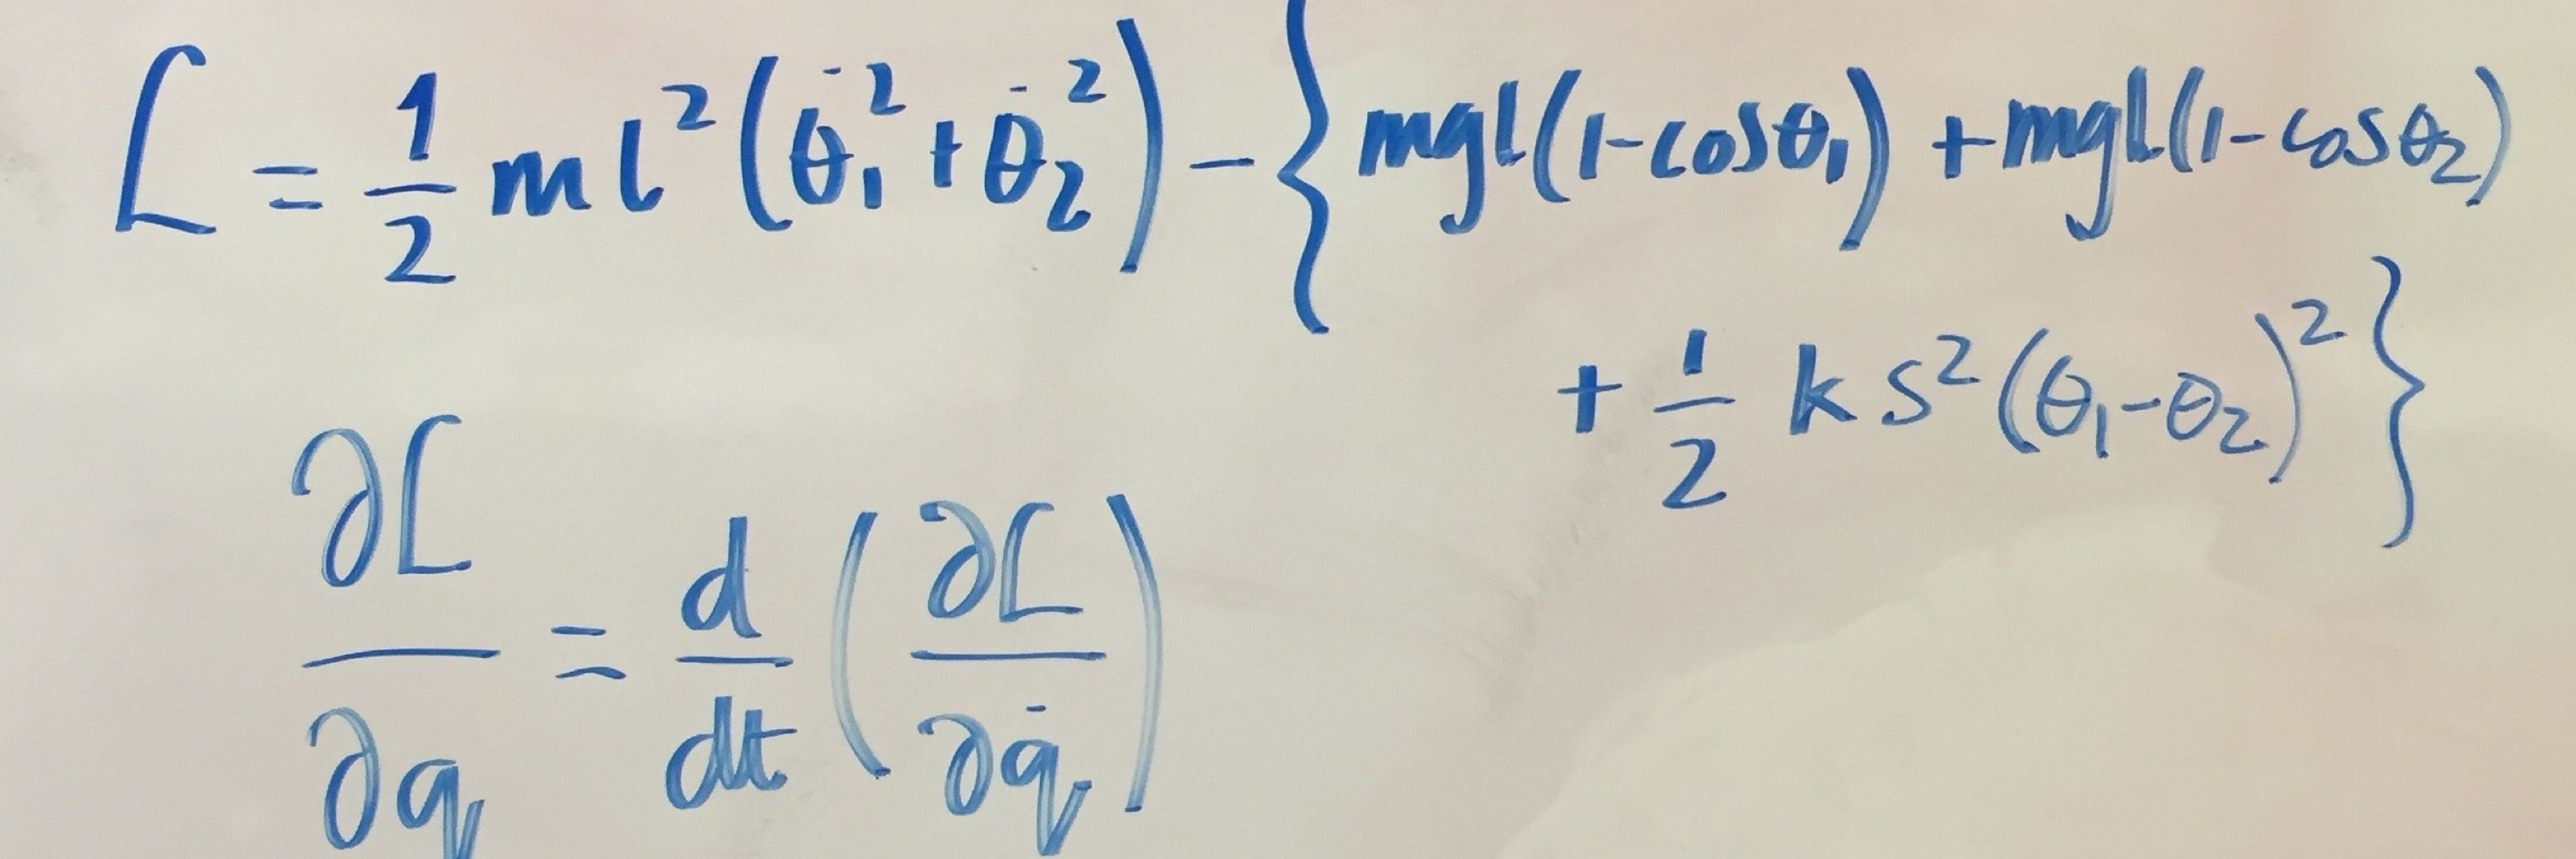 L = 1/2 ml²(θ̇₁² + θ̇₂²) - {mgl(1-cosθ₁) + mgl(1-cosθ₂)
+ 1/2 ks²(θ₁-θ₂)²}
∂L/∂q = d/dt (∂L/∂q̇)